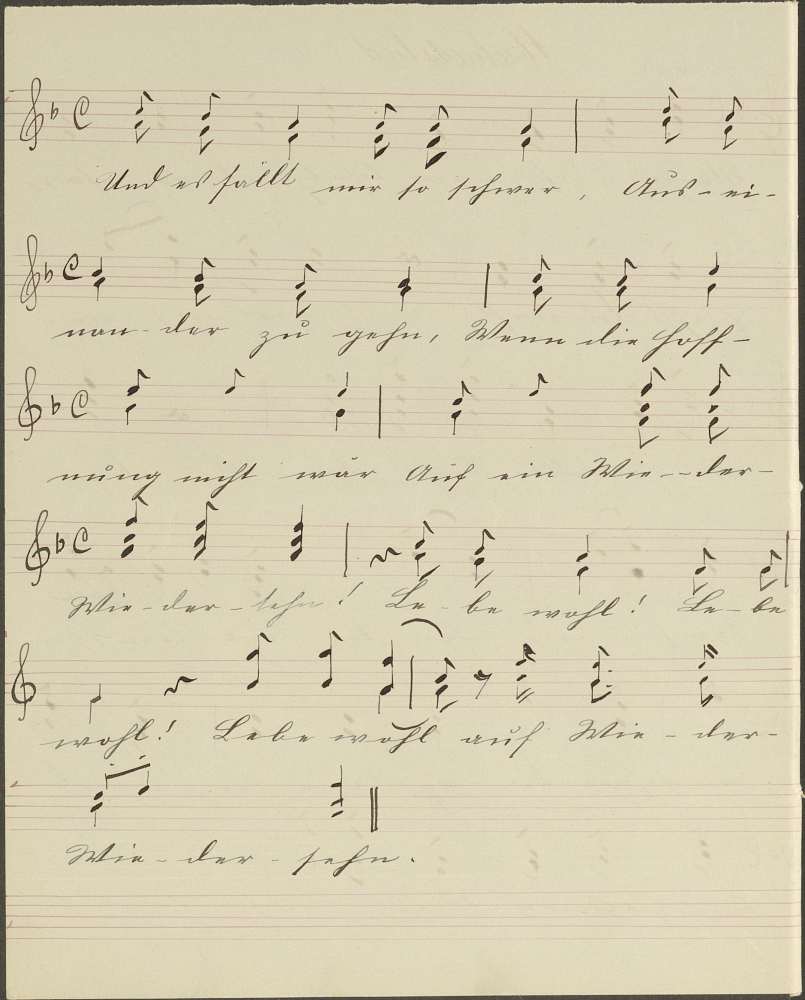 Und es fällt mir so schwer, Aus-ei-
nan-der zu gehn, Wenn die Hoff-
nung nicht wär Auf ein Wie--der-
Wie-der-sehn! Le-be wohl! Le-be
wohl! Lebe wohl auf Wie-der-
Wie-der-sehn.